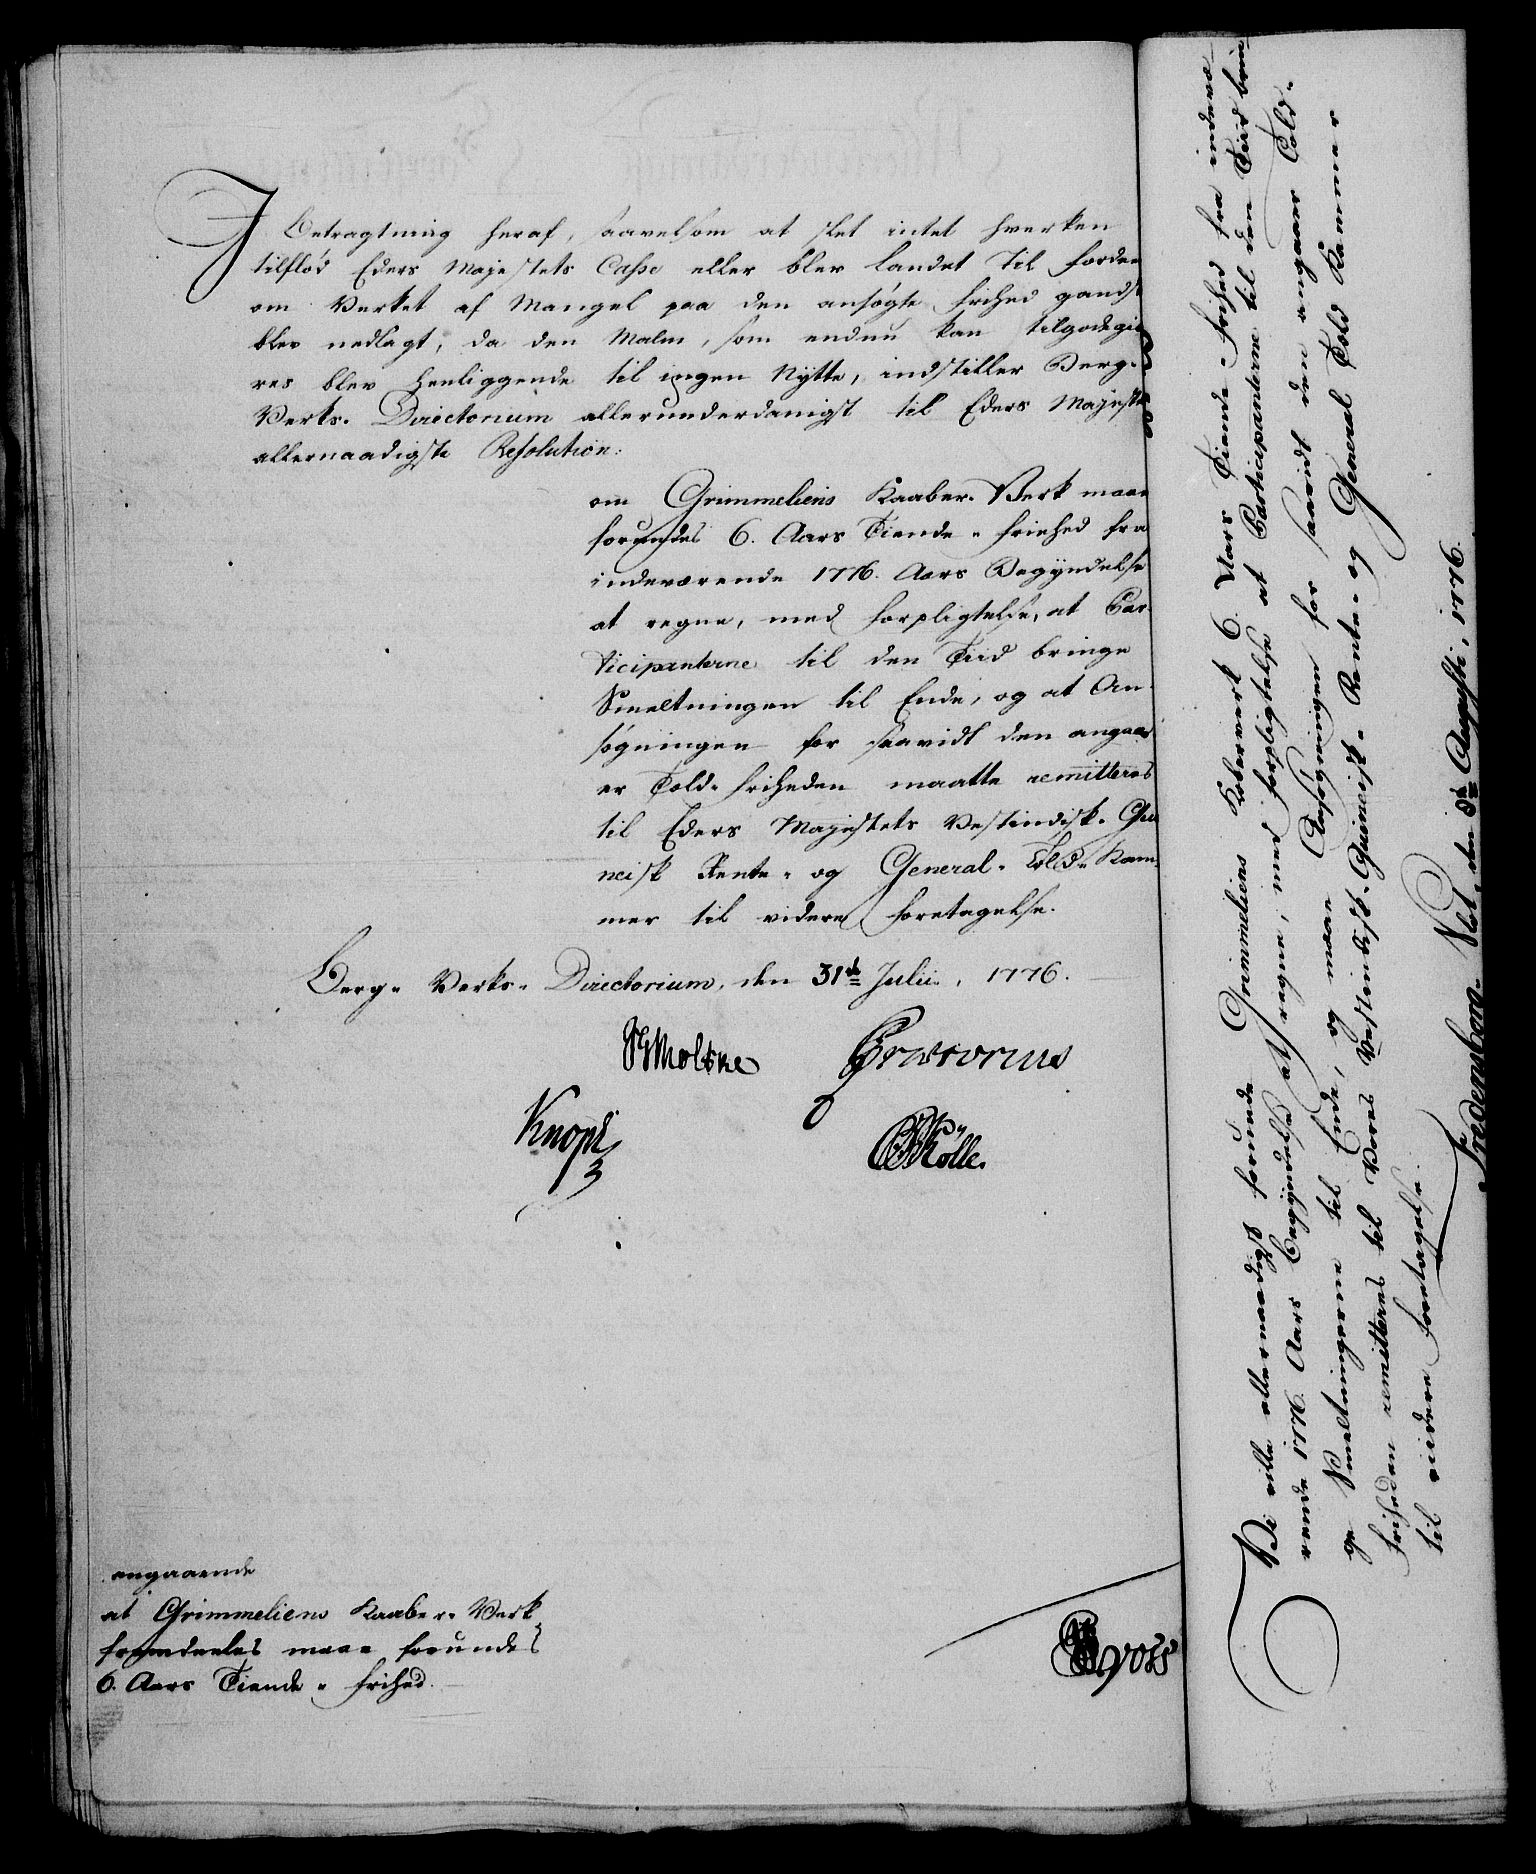 I betragtning heraf, saavelsom at slet intet hverken
tilflød Eders Majestets Casse eller blev landet til fordeel
om Verket af Mangel paa den ansøgte frihed gandsk
blev nedlagt, da den Malm, som endnu kan tilgodegiö
res blev henliggende til ingen Nytte, indstiller Berg-
Verks-Directorium allerunderdanigst til Eders Majestets
allernaadigste Resolution:
om Grimmeliens Kaaber-Verk maae
forundes 6. Aars Tiende-friehed fra
indeværende 1776. Aars Begyndelse
at regne, med forpligtelse, at Par-
ticipanterne til den Tiid bringe
Smeltningen til Ende, og at An-
søgningen for saavidt den angaa-
er Told-friheden maatte remitteres
til Eders Majestets Vestindisk-Gui
neisk Rente- og General-Told-Kam-
mer til videre foretagelse.
Berg-Verks-Directorium, den 31te Julii, 1776.
Moltke Prætorius
Knoph Kølle.
angaaende
at Grimmeliens Kaaber-Verk
fremdeeles maae forundes
6. Aars Tiende-frihed.
Vi ville allernaadigst forunde Grimmeliens Kobberverk 6. Aars Tiende-frihed fra indevæ-
rende 1776. Aars Begyndelse at regne, med forpligtelse at Participanterne til den Tiid brin-
ge Smeltningerne til Ende, og maae Ansøgningen for saavidt den angaaer Told-
friheden remitteres til Vores Vestindisk-Guineisk-Rente- og General Told Kammer
til videre foretagelse.
Fredensborg Slot, den 8de Augusti, 1776.